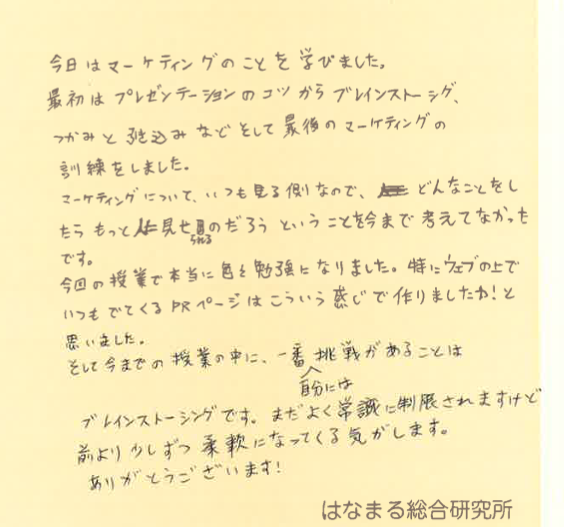 今日はマーケティングのことを学びました。
最初はプレゼンテーションのコツからブレインストーシグ、
つかみと引き込みなどそして最後のマーケティングの
訓練をしました。
マーケティングについて、いつも見る側なので、どんなことをし
たらもっと見せられるのだろうということを今まで考えてなかった
です。
今回の授業で本当に色々勉強になりました。特にウェブの上で
いつもでてくるPRページはこういう感じで作りましたか!と
思いました。
そして今までの授業の中に、一番挑戦があることは
自分には
ブレインストーシングです。まだよく常識に制限されますけど
前より少しずつ柔軟になってくる気がします。
ありがとうございます!
はなまる総合研究所